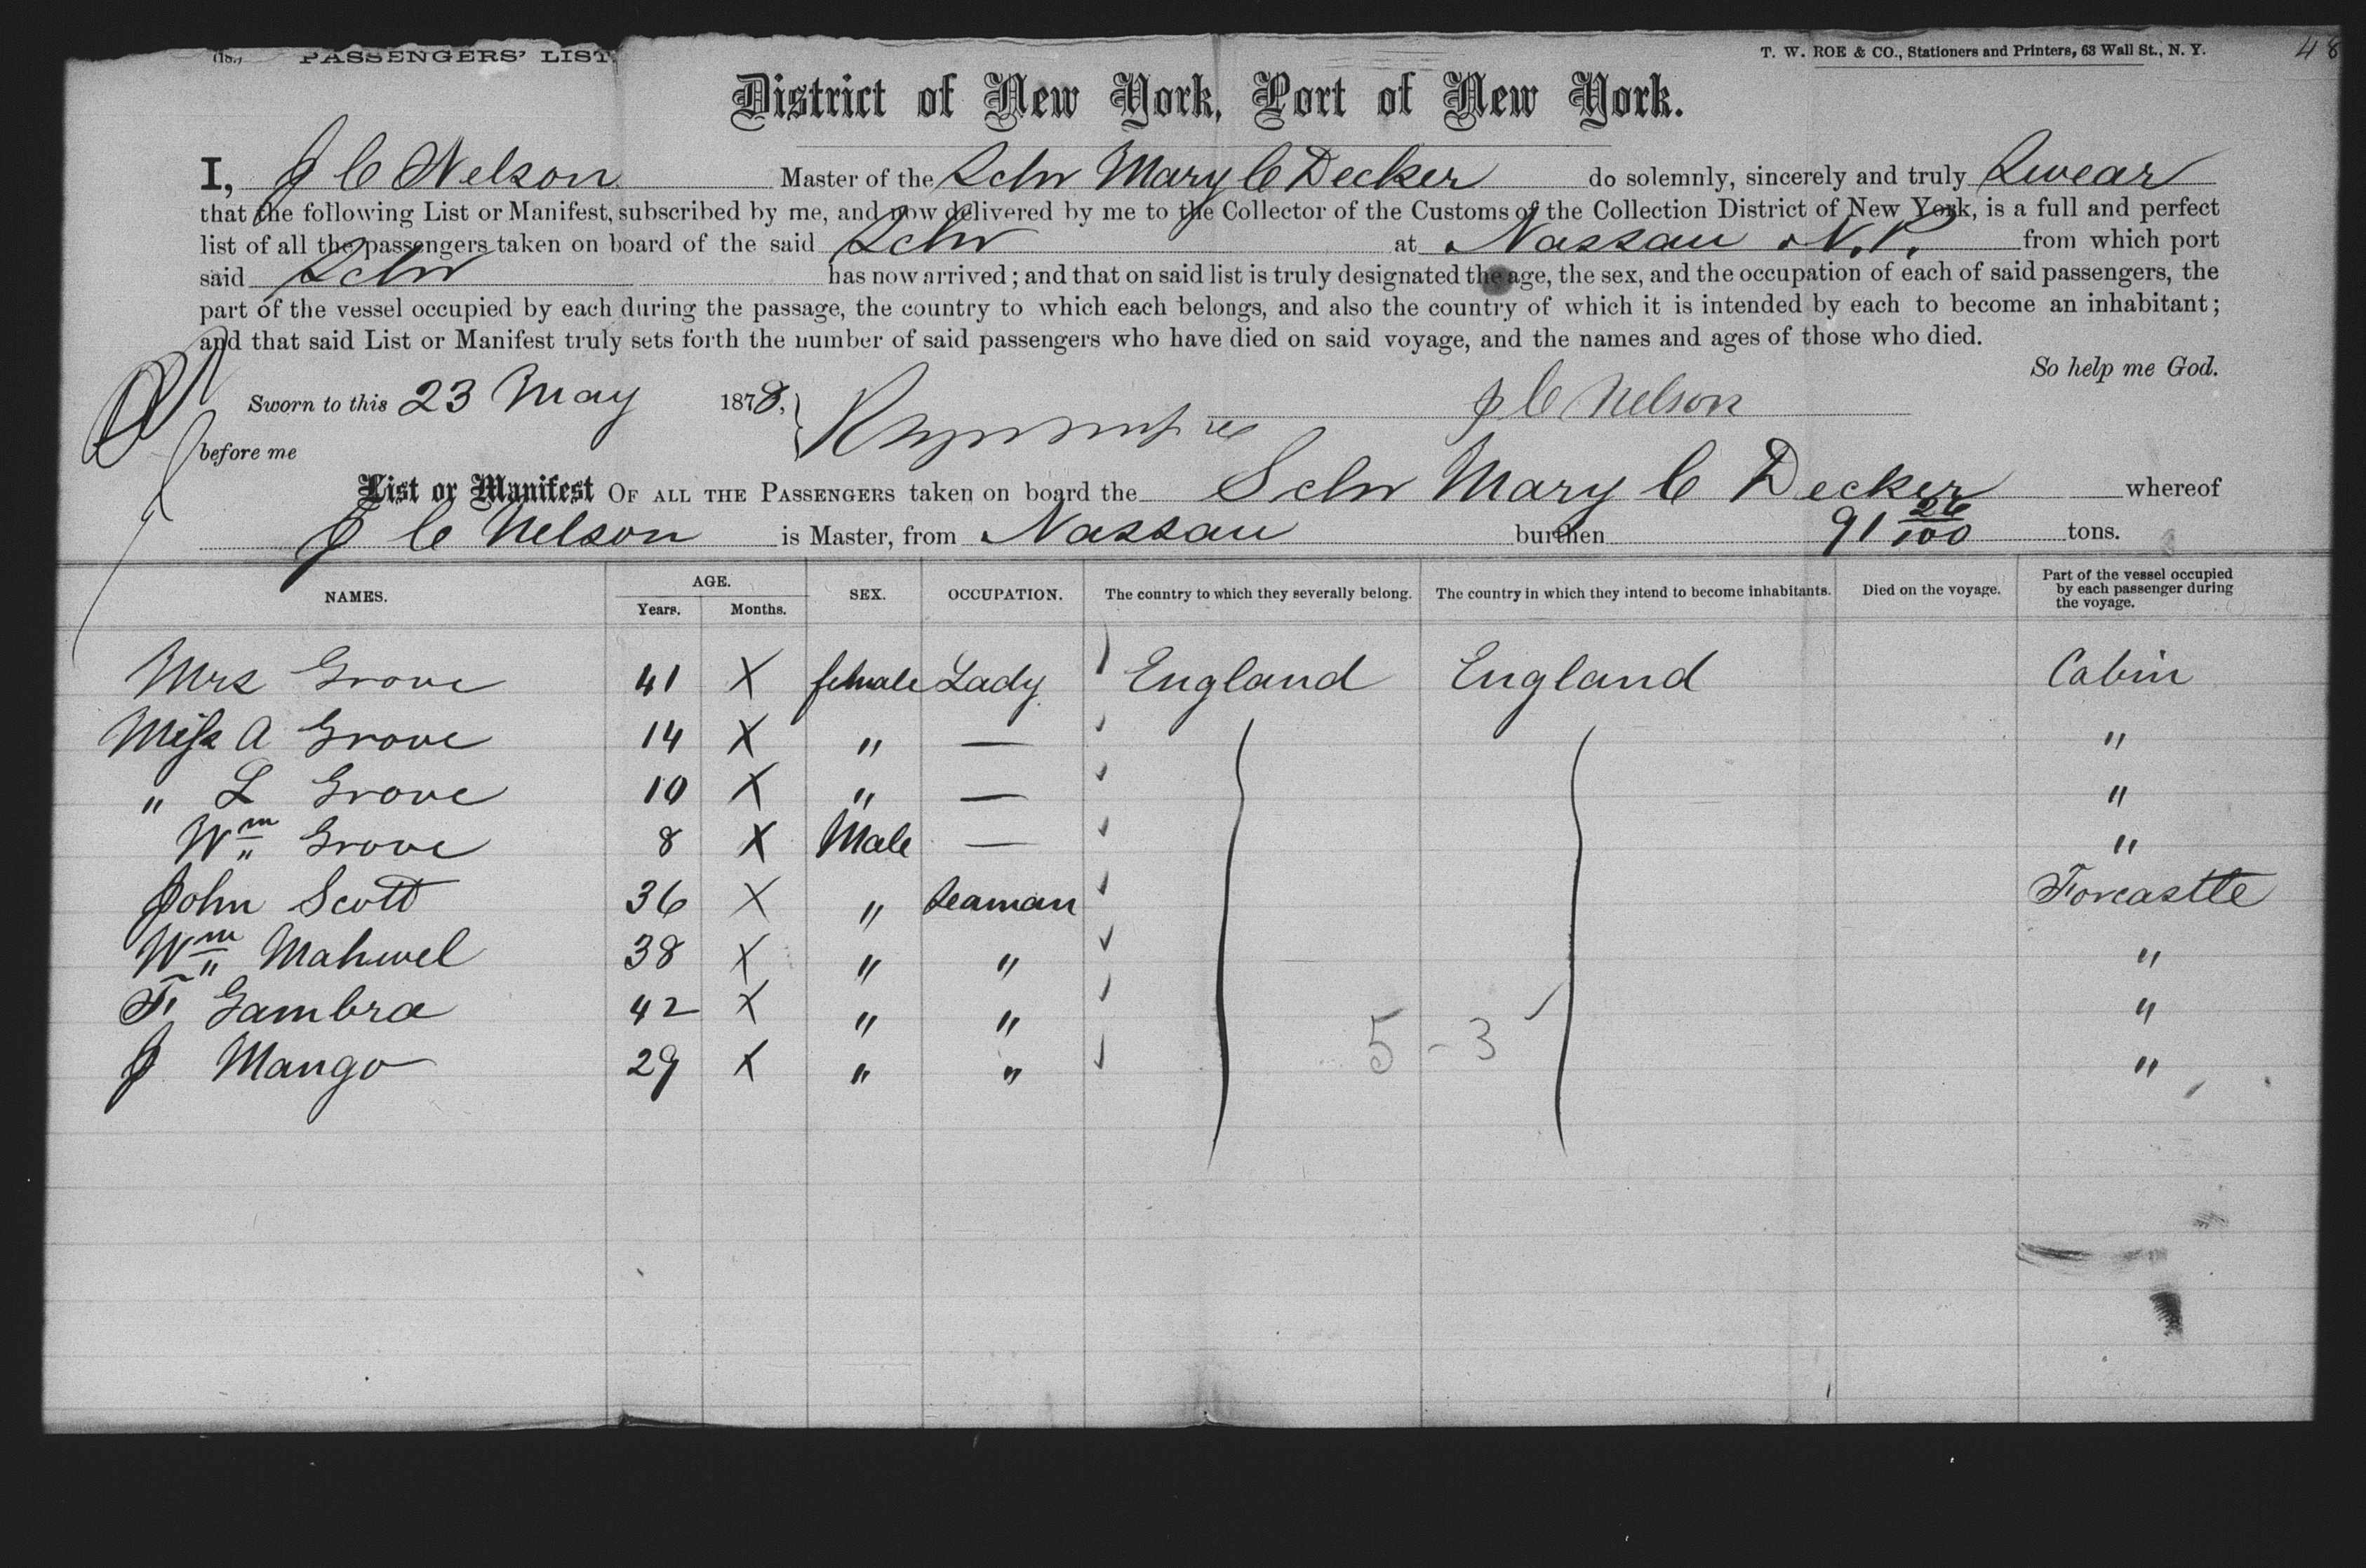 (18.) PASSENGERS' LIST
T. W. ROE & CO., Stationers and Printers, 63 Wall St., N. Y.
48
District of New York, Port of New York.
I, J C Nelson Master of the Schr Mary C Decker do solemnly, sincerely and truly Swear
that the following List or Manifest, subscribed by me, and now delivered by me to the Collector of the Customs of the Collection District of New York, is a full and perfect
list of all the passengers taken on board of the said Schr at Nassau N.P. from which port
said Schr has now arrived; and that on said list is truly designated the age, the sex, and the occupation of each of said passengers, the
part of the vessel occupied by each during the passage, the country to which each belongs, and also the country of which it is intended by each to become an inhabitant;
and that said List or Manifest truly sets forth the number of said passengers who have died on said voyage, and the names and ages of those who died.
So help me God.
Sworn to this 23 May 1878, J C Nelson
before me
List or Manifest OF ALL THE PASSENGERS taken on board the Schr Mary C Decker whereof
J C Nelson is Master, from Nassau burthen 91 26/100 tons.
NAMES. AGE. Years. Months. SEX. OCCUPATION. The country to which they severally belong. The country in which they intend to become inhabitants. Died on the voyage. Part of the vessel occupied by each passenger during the voyage.
Mrs Grove 41 X female Lady England England Cabin
Miss A Grove 14 X " — "
" L Grove 10 X " — "
Wm Grove 8 X Male — "
John Scott 36 X " Seaman Forcastle
Wm Mahwel 38 X " " "
F Gambra 42 X " " "
J Mango 29 X " " "
5 - 3